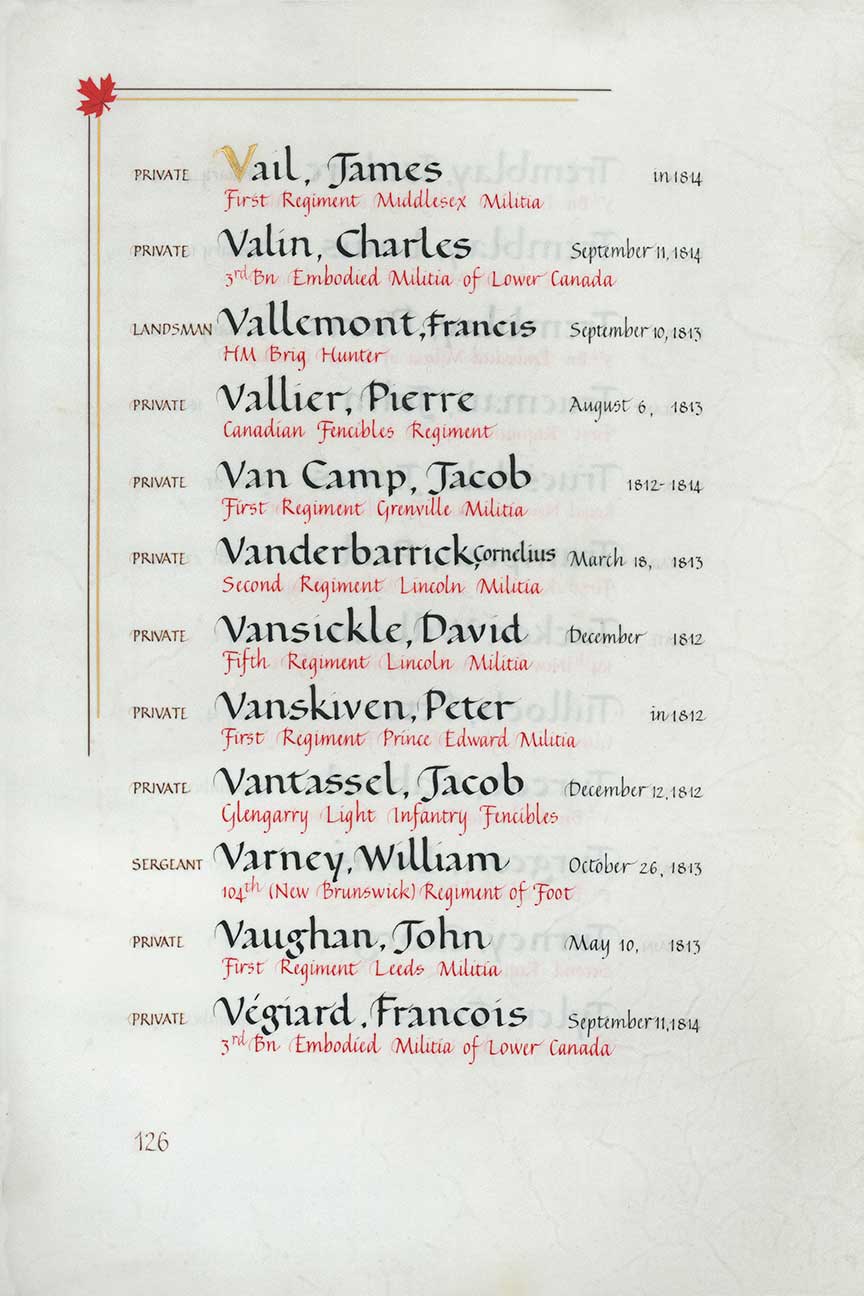 PRIVATE Vail, James in 1814
First Regiment Middlesex Militia
PRIVATE Valin, Charles September 11, 1814
3rd Bn Embodied Militia of Lower Canada
LANDSMAN Vallemont, Francis September 10, 1813
HM Brig Hunter
PRIVATE Vallier, Pierre August 6, 1813
Canadian Fencibles Regiment
PRIVATE Van Camp, Jacob 1812-1814
First Regiment Grenville Militia
PRIVATE Vanderbarrick, Cornelius March 18, 1813
Second Regiment Lincoln Militia
PRIVATE Vansickle, David December 1812
Fifth Regiment Lincoln Militia
PRIVATE Vanskiven, Peter in 1812
First Regiment Prince Edward Militia
PRIVATE Vantassel, Jacob December 12, 1812
Glengarry Light Infantry Fencibles
SERGEANT Varney, William October 26, 1813
104th (New Brunswick) Regiment of Foot
PRIVATE Vaughan, John May 10, 1813
First Regiment Leeds Militia
PRIVATE Végiard, Francois September 11, 1814
3rd Bn Embodied Militia of Lower Canada
126